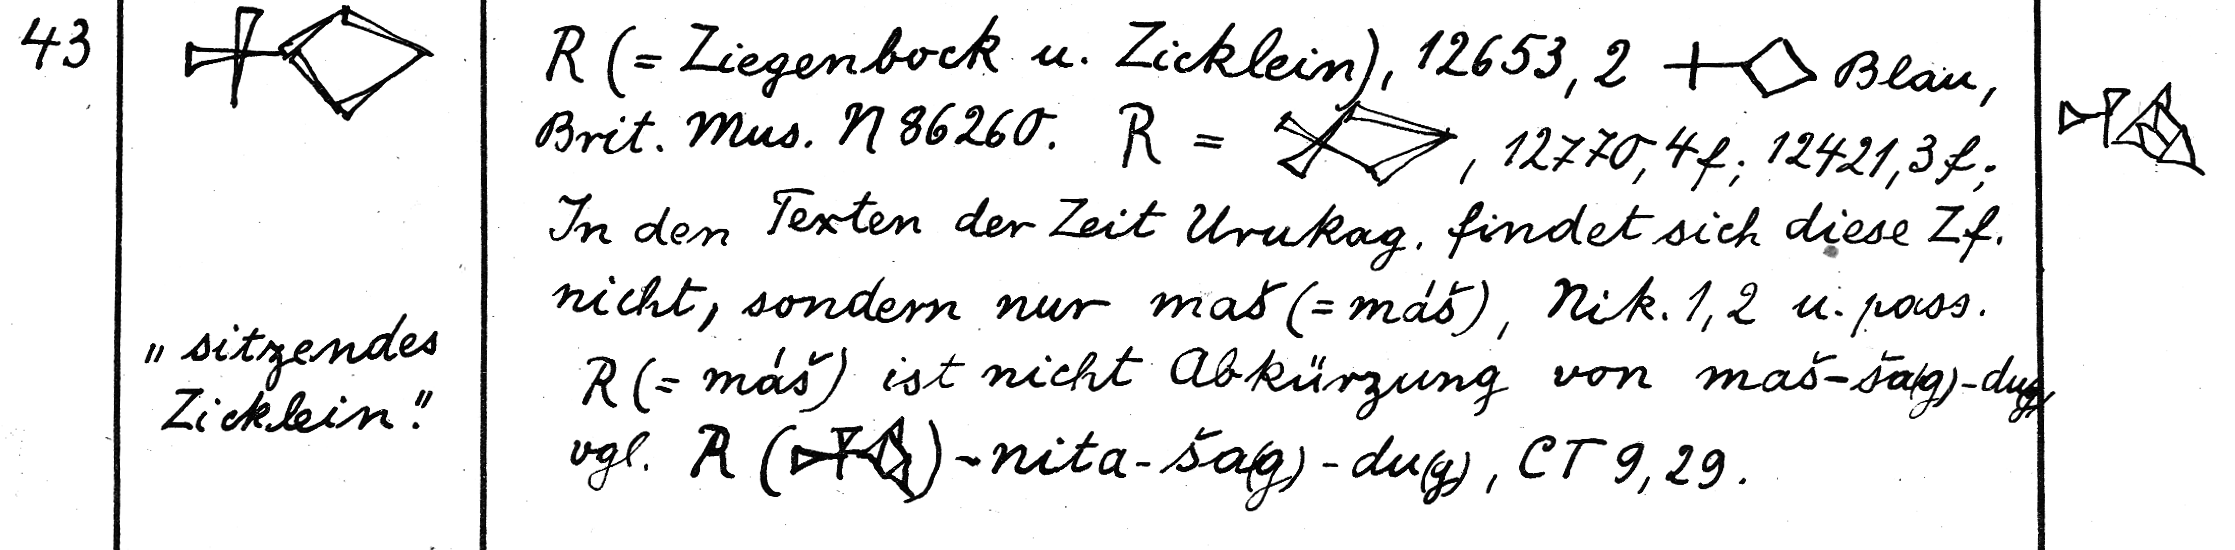 43
„sitzendes
Zicklein."
R (= Ziegenbock u. Zicklein), 12653, 2 Blau,
Brit. Mus. N 86260. R = , 12770, 4f; 12421, 3f;
In den Texten der Zeit Urukag. findet sich diese Zf.
nicht, sondern nur maš (= máš), Nik. 1, 2 u. pass.
R (= máš) ist nicht Abkürzung von maš-ša(g)-du(g)
vgl. R ( )-nita-ša(g)-du(g), CT 9, 29.